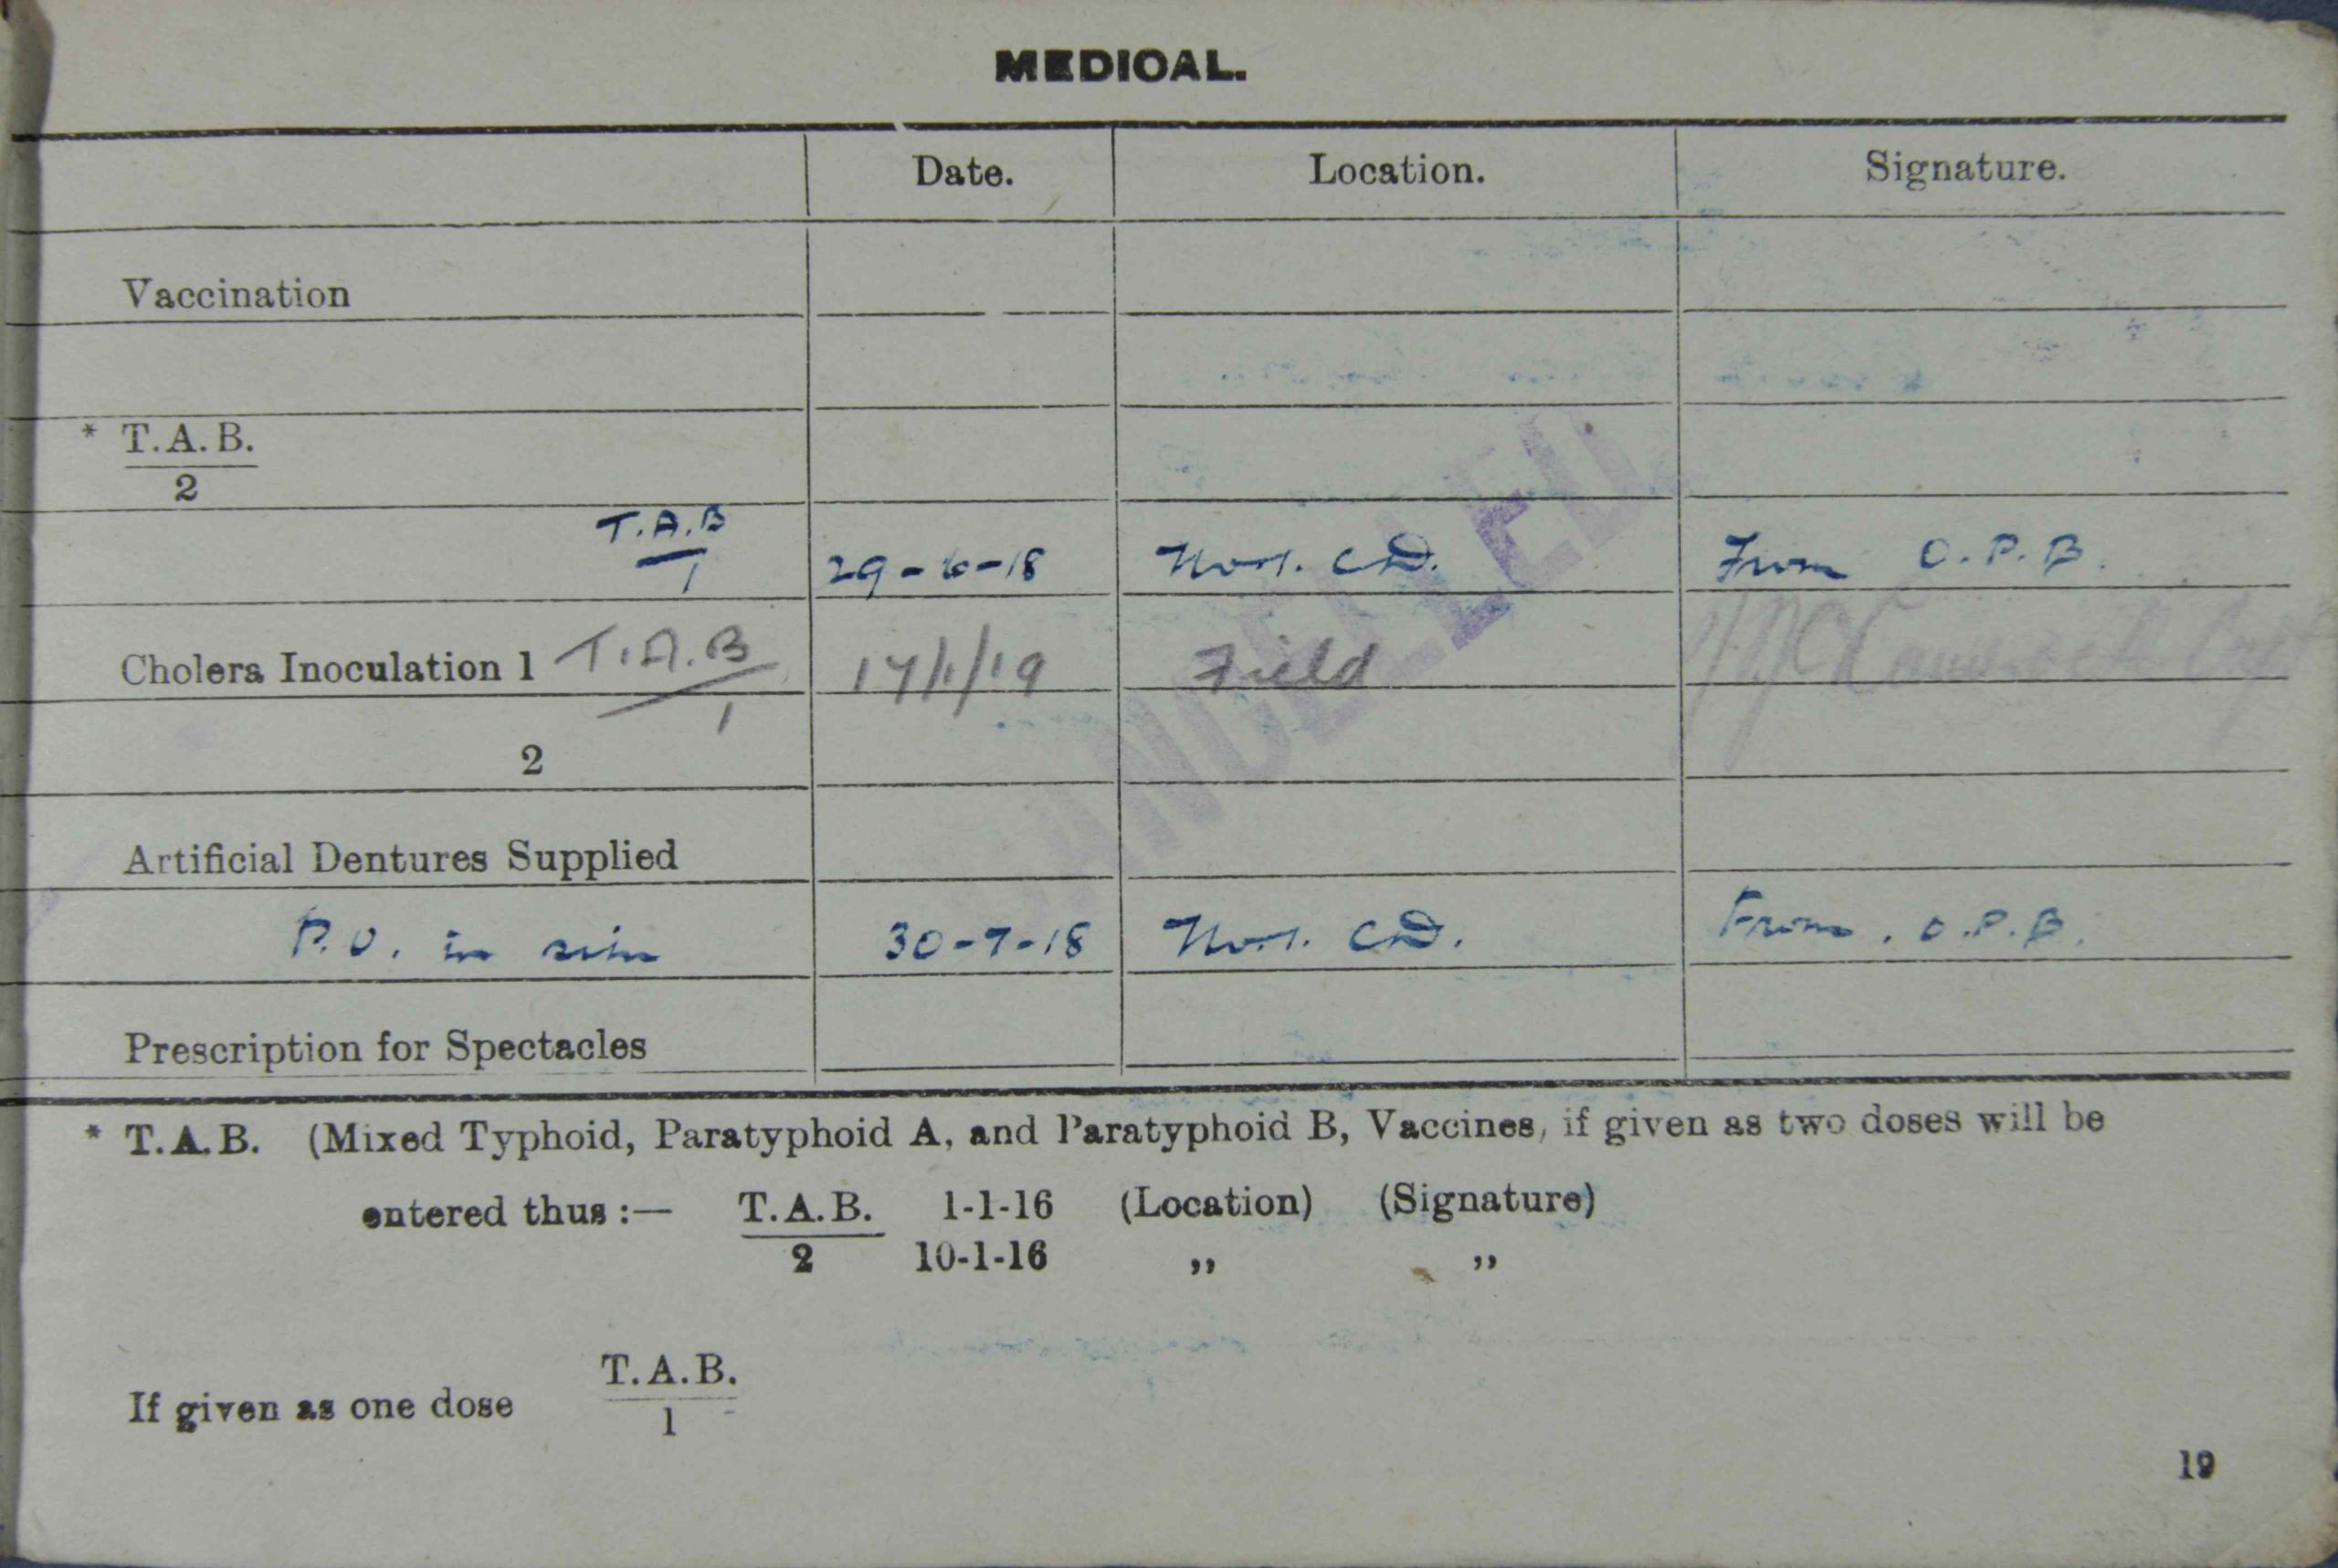 MEDICAL.
Date. Location. Signature.
Vaccination
* T.A.B.
2
T.A.B
1 29-6-18 C.D. From O.P.B.
Cholera Inoculation 1 T.A.B 17/1/19 Field Capt
1
2
CANCELLED
Artificial Dentures Supplied
P.U. in situ 30-7-18 C.D. From. O.P.B.
Prescription for Spectacles
* T.A.B. (Mixed Typhoid, Paratyphoid A, and Paratyphoid B, Vaccines, if given as two doses will be
entered thus :— T.A.B. 1-1-16 (Location) (Signature)
2 10-1-16 ,, ,,
If given as one dose T.A.B.
1
19